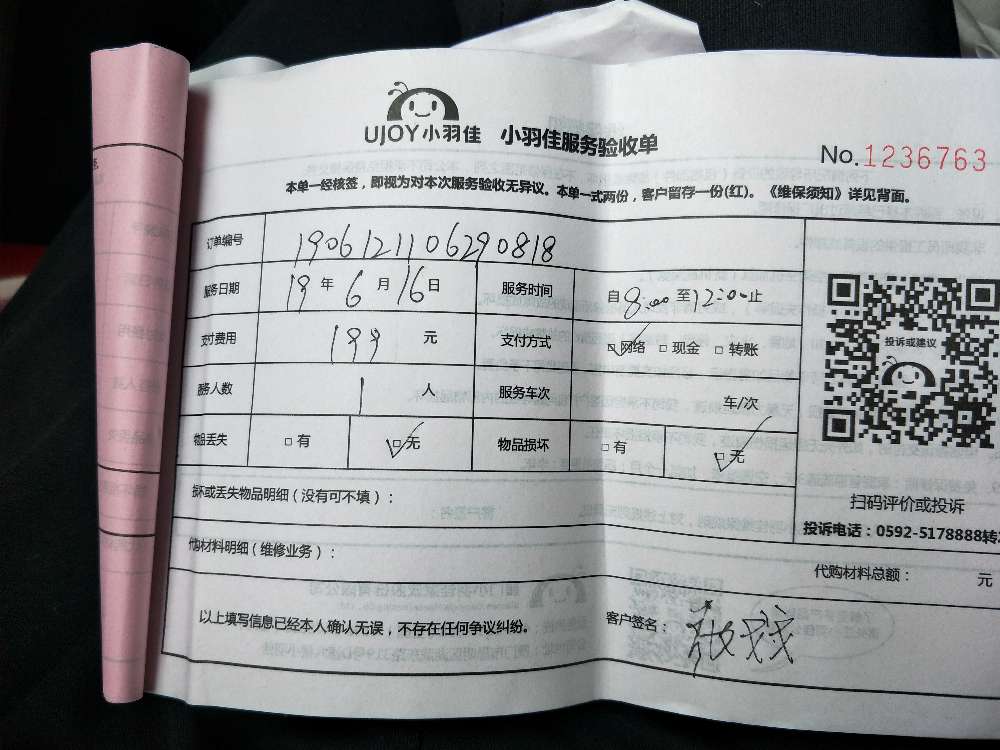 UJOY小羽佳 小羽佳服务验收单
No.1236763
本单一经核签，即视为对本次服务验收无异议。本单一式两份，客户留存一份(红)。《维保须知》详见背面。
订单编号 1906121106290818
服务日期 19年6月16日 服务时间 自8:00至12:00止
支付费用 199元 支付方式 ☑网络 □现金 □转账
服务人数 1人 服务车次 车/次
物品丢失 □有 ☑无 物品损坏 □有 ☑无
投诉或建议
扫码评价或投诉
投诉电话：0592-5178888转
损坏或丢失物品明细（没有可不填）：
代购材料明细（维修业务）：
代购材料总额： 元
以上填写信息已经本人确认无误，不存在任何争议纠纷。
客户签名：